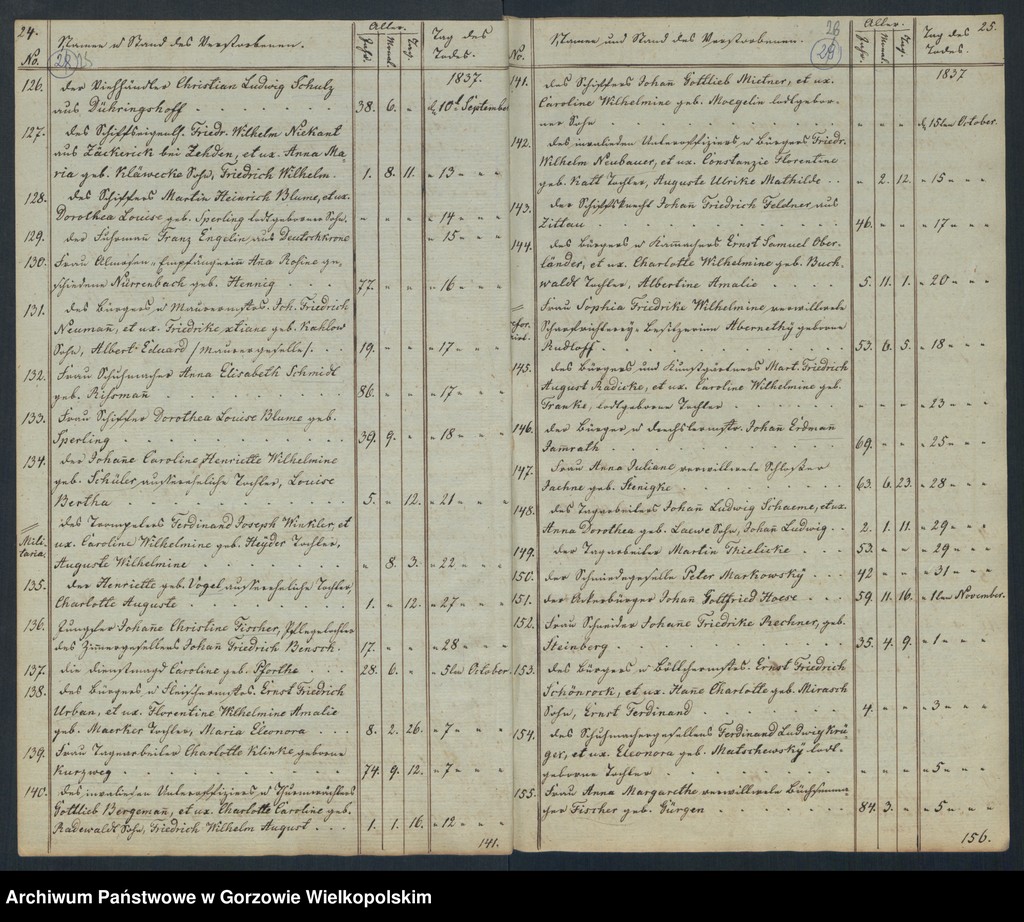 24.
No.
Namen u Stand des Verstorbenen.
Alter.
Jahr. Monat. Tag.
Tag des
Todes.
1837.
126. der Viehhändler Christian Ludwig Schulz
aus Dühringshoff 38. 6. " d 10t September
127. des Schiffseigenth. Friedr. Wilhelm Niekant
aus Zäckerick bei Zehden, et ux. Anna Ma
ria geb. Kläwecke Sohn, Friedrich Wilhelm. 1. 8. 11. " 13 " "
128. des Schiffers Martin Heinrich Blume, et ux.
Dorothea Louise geb. Sperling todtgeborner Sohn. " " " " 14 " "
129. der Fuhrmañ Franz Engelin, aus Deutschkrone " 15 " "
130. Frau Almosen-Empfängerin Aña Rosine ge,
schiedene Nürrenbach geb. Hennig 77. " " " 16 " "
131. des Bürgers u Maurermstrs. Joh. Friedrich
Neumañ, et ux. Friedrike, xtiane geb. Kahlow
Sohn, Albert Eduard /Maurergeselle/. 19. " " " 17 " "
132. Frau Schuhmacher Anna Elisabeth Schmidt
geb. Rißmañ 86. " " " 17 " "
133. Frau Schiffer Dorothea Louise Blume geb.
Sperling 39. 9. " " 18 " "
134. der Johañe Caroline Henriette Wilhelmine
geb. Schüler, außereheliche Tochter, Louise
Bertha 5. " 12. " 21 " "
Mili-
taria.
des Trompeters Ferdinand Joseph Winkler, et
ux. Caroline Wilhelmine geb. Heyder Tochter,
Auguste Wilhelmine " 8. 3. " 22 " "
135. der Henriette geb. Vogel außereheliche Tochter,
Charlotte Auguste 1. " 12. " 27 " "
136. Jungfer Johañe Christine Fischer, Pflegetochter
des Zimergesellens Johañ Friedrich Bensch. 17. " " " 28 " "
137. die Dienstmagd Caroline geb. Pfothe 28. 6. " " 5ten October.
138. des Bürgers u Fleischermstrs. Ernst Friedrich
Urban, et ux. Florentine Wilhelmine Amalie
geb. Maerker Tochter, Maria Eleonora 8. 2. 26. " 7 " "
139. Frau Tagearbeiter Charlotte Klinke, geborne
Kurzweg 74. 9. 12. " 7 " "
140. des invaliden Unteroffiziers u Thurmwächters
Gottlieb Bergemañ, et ux. Charlotte Caroline geb.
Radewaldt Sohn, Friedrich Wilhelm August 1. 1. 16. " 12 " "
141.
25.
No.
Namen und Stand des Verstorbenen.
Alter.
Jahr. Monat. Tag.
Tag des
Todes.
1837
141. des Schiffers Johañ Gottlieb Mietner, et ux.
Caroline Wilhelmine geb. Moegelin todtgebor-
ner Sohn " " " d 15ten October.
142. des invaliden Unteroffiziers u Bürgers Friedr.
Wilhelm Neubauer, et ux. Constanzie Florentine
geb. Katt Tochter, Auguste Ulrike Mathilde " 2. 12. " 15 " "
143. der Schiffsknecht Johañ Friedrich Feldner, aus
Zittau 46. " " " 17 " "
144. des Bürgers u Kammachers Ernst Samuel Ober-
länder, et ux. Charlotte Wilhelmine geb. Buch-
waldt Tochter, Albertine Amalie 5. 11. 1. " 20 " "
Frau Sophia Friedrike Wilhelmine, verwittwete
Scharfrichterey-Besitzerin Abernethy geborne
Rudloff 53. 6. 5. " 18 " "
145. des Bürgers und Kunstgärtners Mart. Friedrich
August Radicke, et ux. Caroline Wilhelmine geb.
Franke, todtgeborne Tochter " " " " 23 " "
146. der Bürger u Drechslermstr. Johañ Erdmañ
Jamrath 69. " " " 25 " "
147. Frau Anna Juliane verwittwete Schlosser
Jaehne geb. Stenigke 63. 6. 23. " 28 " "
148. des Tagarbeiters Johañ Ludwig Schaeme, et ux.
Anna Dorothea geb. Laewe Sohn, Johañ Ludwig 2. 1. 11. " 29 " "
149. der Tagarbeiter Martin Thielicke 53. " " " 29 " "
150. der Schmiedegeselle Peter Markowsky 42 " " " 31 " "
151. der Ackerbürger Johañ Gottfried Hoese 59. 11. 16. " 1ten November.
152. Frau Schneider Johañe Friedrike Prechner, geb.
Steinberg 35. 4. 9. " 1 " "
153. des Bürgers u Böttchermstrs. Ernst Friedrich
Schönrock, et ux. Hañe Charlotte geb. Mirasch
Sohn, Ernst Ferdinand 4. " " " 3 " "
154. des Schuhmachergesellens Ferdinand Ludwig Krü
ger, et ux. Eleonora geb. Matschewsky todt-
geborne Tochter " " " " 5 " "
155. Frau Anna Margarethe verwittwete Büchsenma-
cher Fischer geb. Gürgen 84. 3. " " 5 " "
156.
Archiwum Państwowe w Gorzowie Wielkopolskim